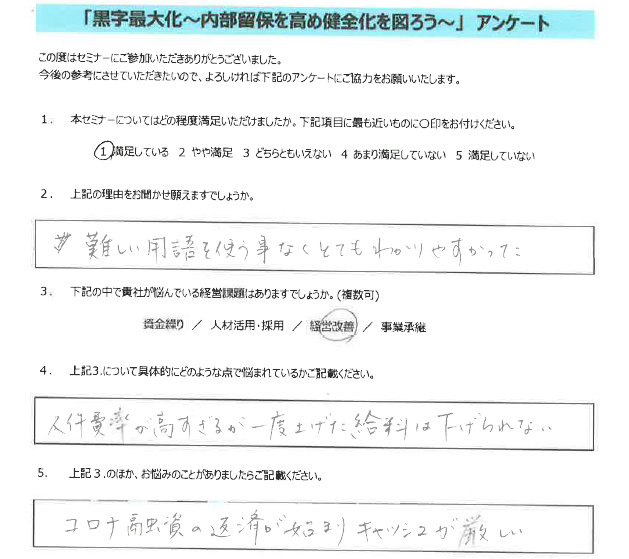 「黒字最大化～内部留保を高め健全化を図ろう～」 アンケート
この度はセミナーにご参加いただきありがとうございました。
今後の参考にさせていただきたいので、よろしければ下記のアンケートにご協力をお願いいたします。
1. 本セミナーについてはどの程度満足いただけましたか。下記項目に最も近いものに〇印をお付けください。
1 満足している 2 やや満足 3 どちらともいえない 4 あまり満足していない 5 満足していない
2. 上記の理由をお聞かせ願えますでしょうか。
難しい用語を使う事なくとてもわかりやすかった
3. 下記の中で貴社が悩んでいる経営課題はありますでしょうか。(複数可)
資金繰り / 人材活用・採用 / 経営改善 / 事業承継
4. 上記3.について具体的にどのような点で悩まれているかご記載ください。
人件費率が高すぎるが一度上げた給料は下げられない
5. 上記3.のほか、お悩みのことがありましたらご記載ください。
コロナ融資の返済が始まりキャッシュが厳しい